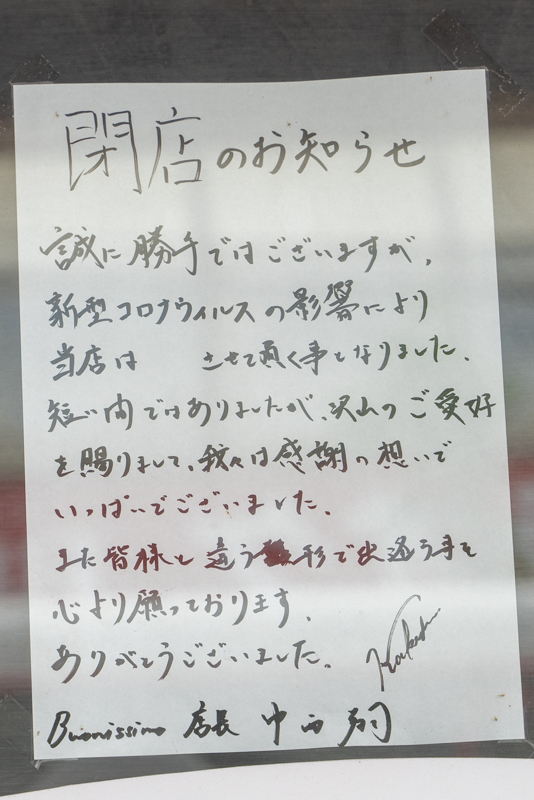 閉店のお知らせ
誠に勝手ではございますが、
新型コロナウィルスの影響により
当店は させて頂く事となりました。
短い間ではありましたが、沢山のご愛好
を賜りまして、我々は感謝の想いで
いっぱいでございました。
また皆様と違う形で出逢う事を
心より願っております。
ありがとうございました。
Buonissimo 店長 中西